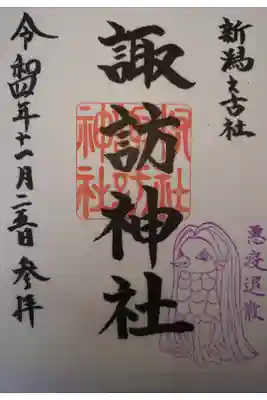 新潟之古社
諏訪神社
悪疫退散
令和四年十一月二十五日参拝